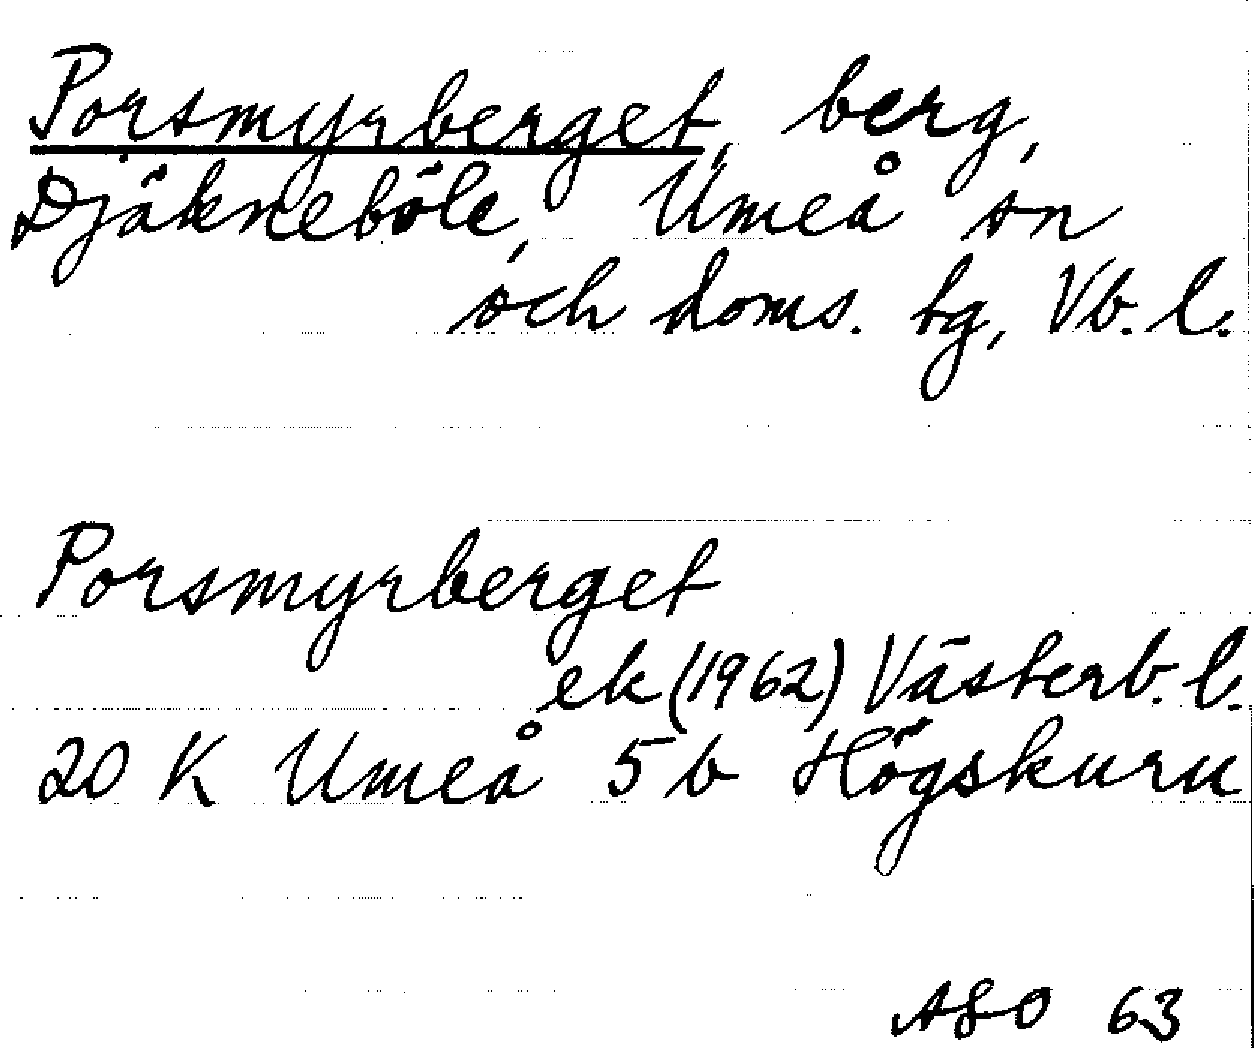 Porsmyrberget, berg,
Djäkneböle, Umeå sn
och doms. tg, Vb. l.
Porsmyrberget
ek (1962) Västerb. l.
20 K Umeå 5 b Högskuru
ASO 63